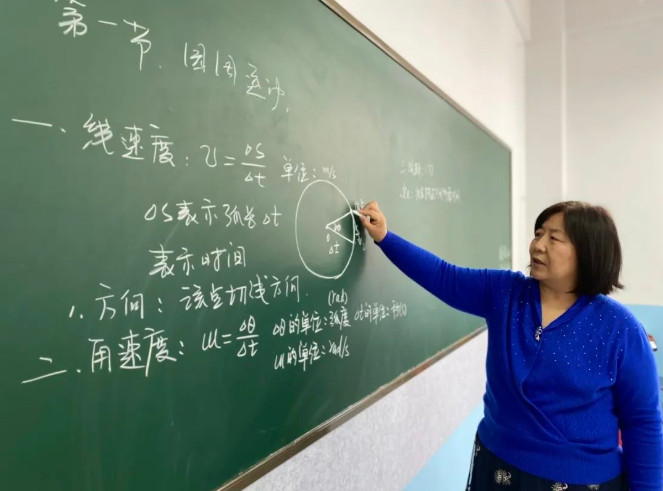 第一节. 圆周运动.
一. 线速度: v = ΔS/Δt 单位: m/s
ΔS表示弧长 Δt
表示时间
1. 方向: 该点切线方向.
二. 角速度: ω = Δθ/Δt
(rad)
Δθ的单位: 弧度 Δt的单位: 秒(s)
ω的单位: rad/s
θ
Δt